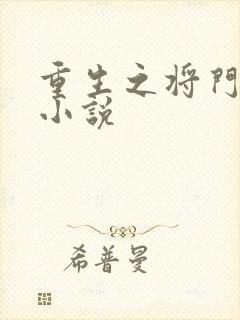 重生之将門
小説
希普曼